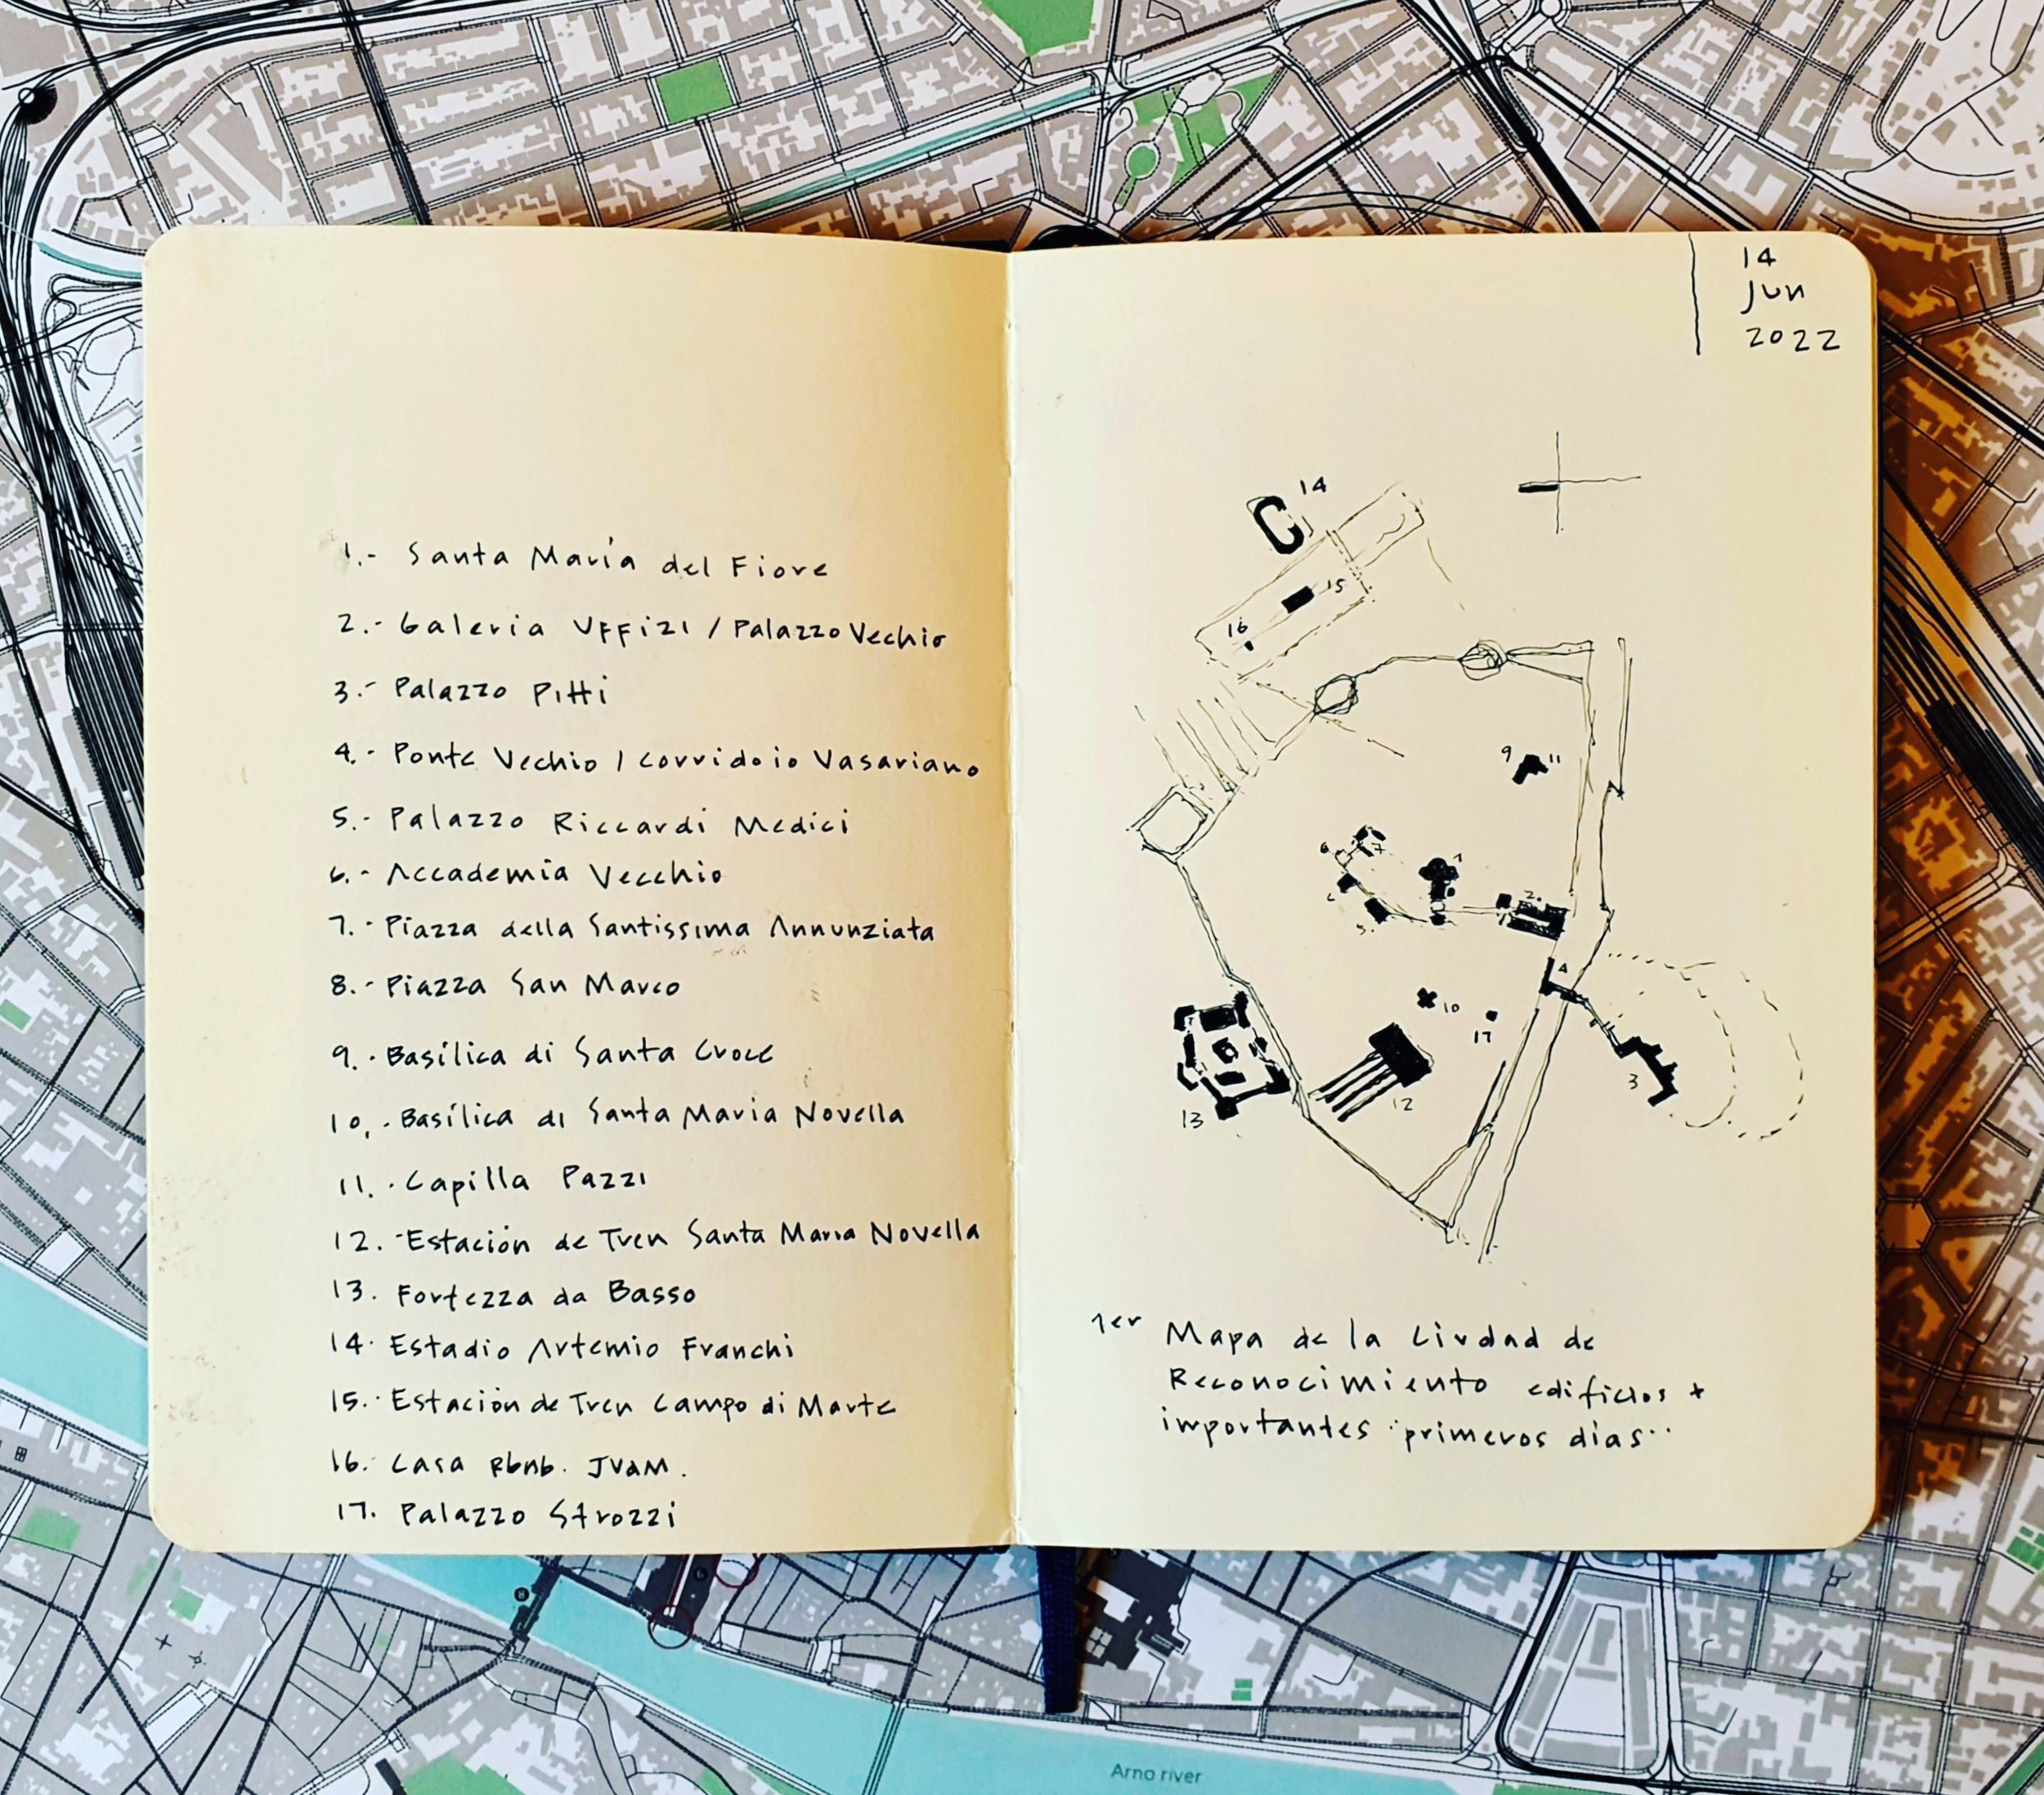 1.- Santa María del Fiore
2.- Galeria Uffizi / Palazzo Vechio
3.- Palazzo Pitti
4.- Ponte Vechio / Corridoio Vasariano
5.- Palazzo Riccardi Medici
6.- Accademia Vecchio
7.- Piazza della Santissima Annunziata
8.- Piazza San Marco
9.- Basílica di Santa Croce
10.- Basílica di Santa Maria Novella
11.- Capilla Pazzi
12.- Estación de Tren Santa Maria Novella
13. Fortezza da Basso
14. Estadio Artemio Franchi
15.- Estación de Tren Campo di Marte
16.- Casa Rbnb. JUAM.
17. Palazzo Strozzi
14
Jun
2022
14
15
16
9 11
6
7
1
5.
2.
4
10
17
3
12
13
1er Mapa de la Ciudad de
Reconocimiento edificios +
importantes primeros días..
Arno river